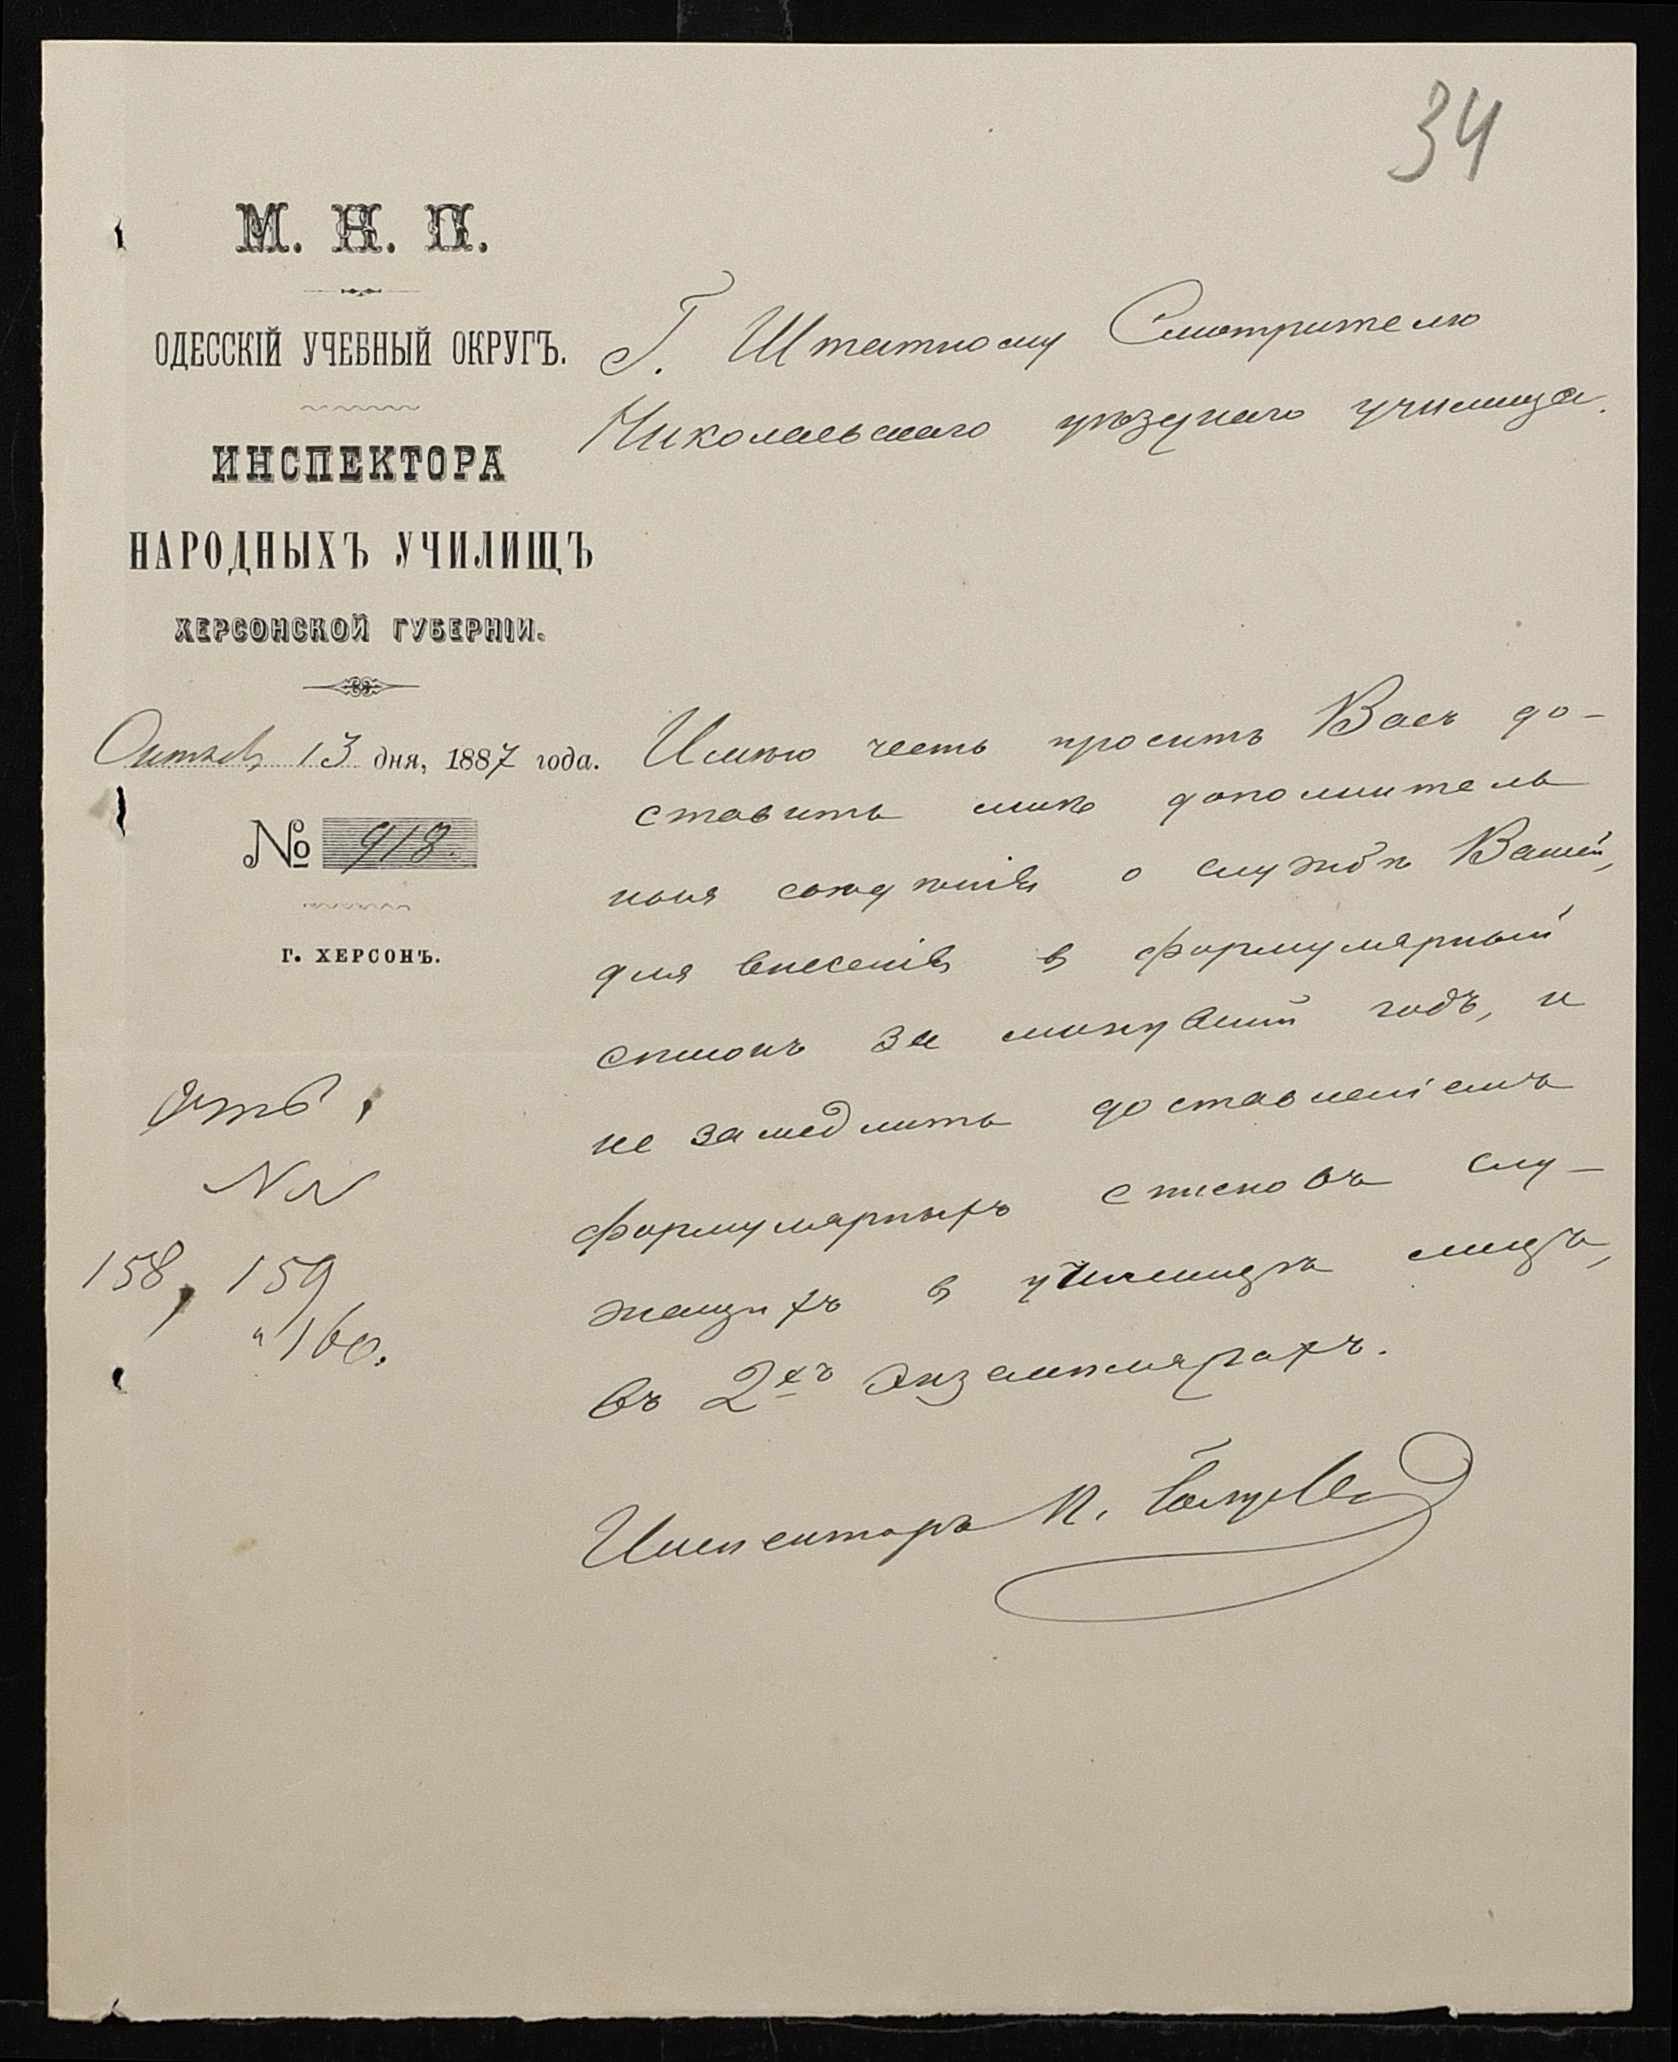 34
М. Н. П.
ОДЕССКІЙ УЧЕБНЫЙ ОКРУГЪ.
ИНСПЕКТОРА
НАРОДНЫХЪ УЧИЛИЩЪ
ХЕРСОНСКОЙ ГУБЕРНІИ.
13 дня, 1887 года.
№ 918.
г. ХЕРСОНЪ.
NN
158, 159
и 160.
Г. Штатному Смотрителю
Николаевскаго уѣзднаго училища.
Имѣю честь просить Васъ до-
ставить мнѣ дополнитель
ныя свѣдѣнія о службѣ Вашей,
для внесенія в формулярный
списокъ за минувшій годъ, и
не замедлить доставленіемъ
формулярныхъ списковъ слу-
жащихъ в училищѣ лицъ,
въ 2хъ экземплярахъ.
Инспекторъ